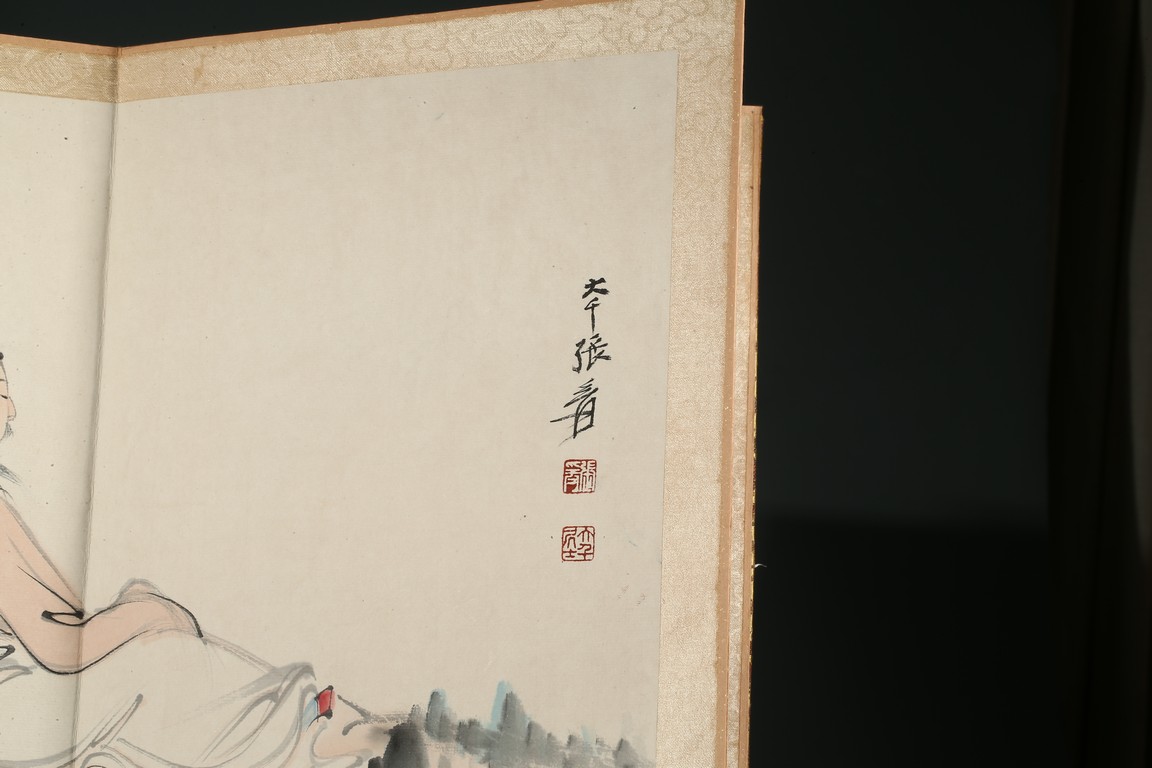 大千張爰
張爰
大千居士